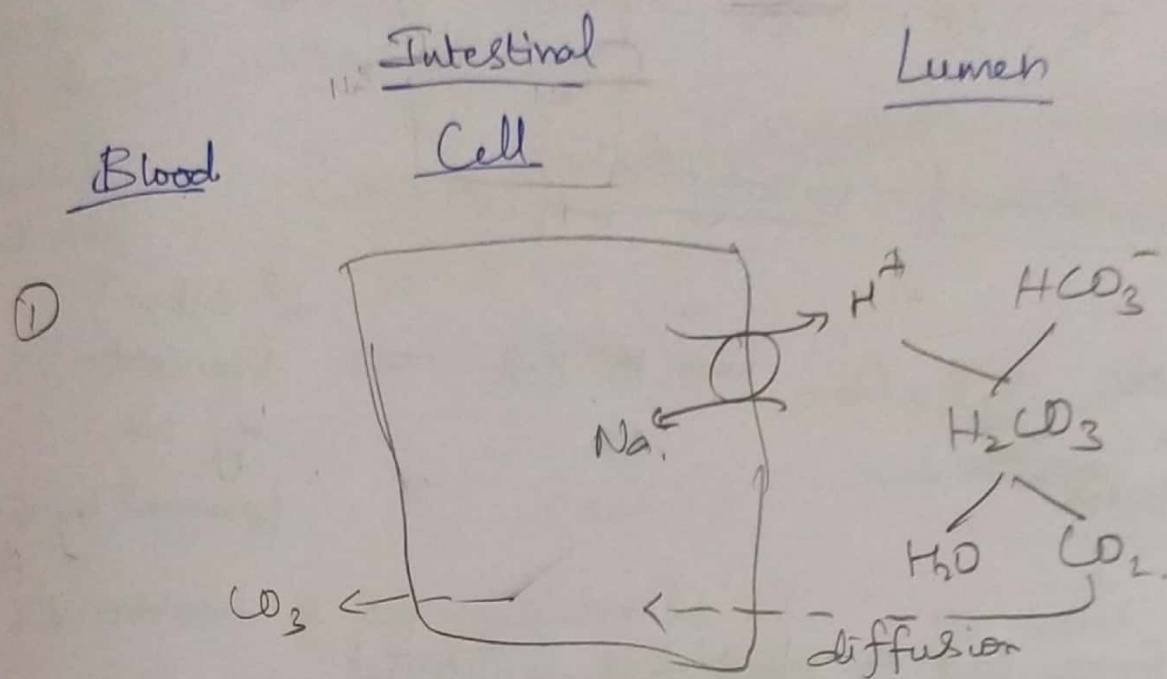 Intestinal
Cell
Lumen
Blood
①
H⁺
HCO₃⁻
Na.
H₂CO₃
H₂O
CO₂.
CO₃
diffusion